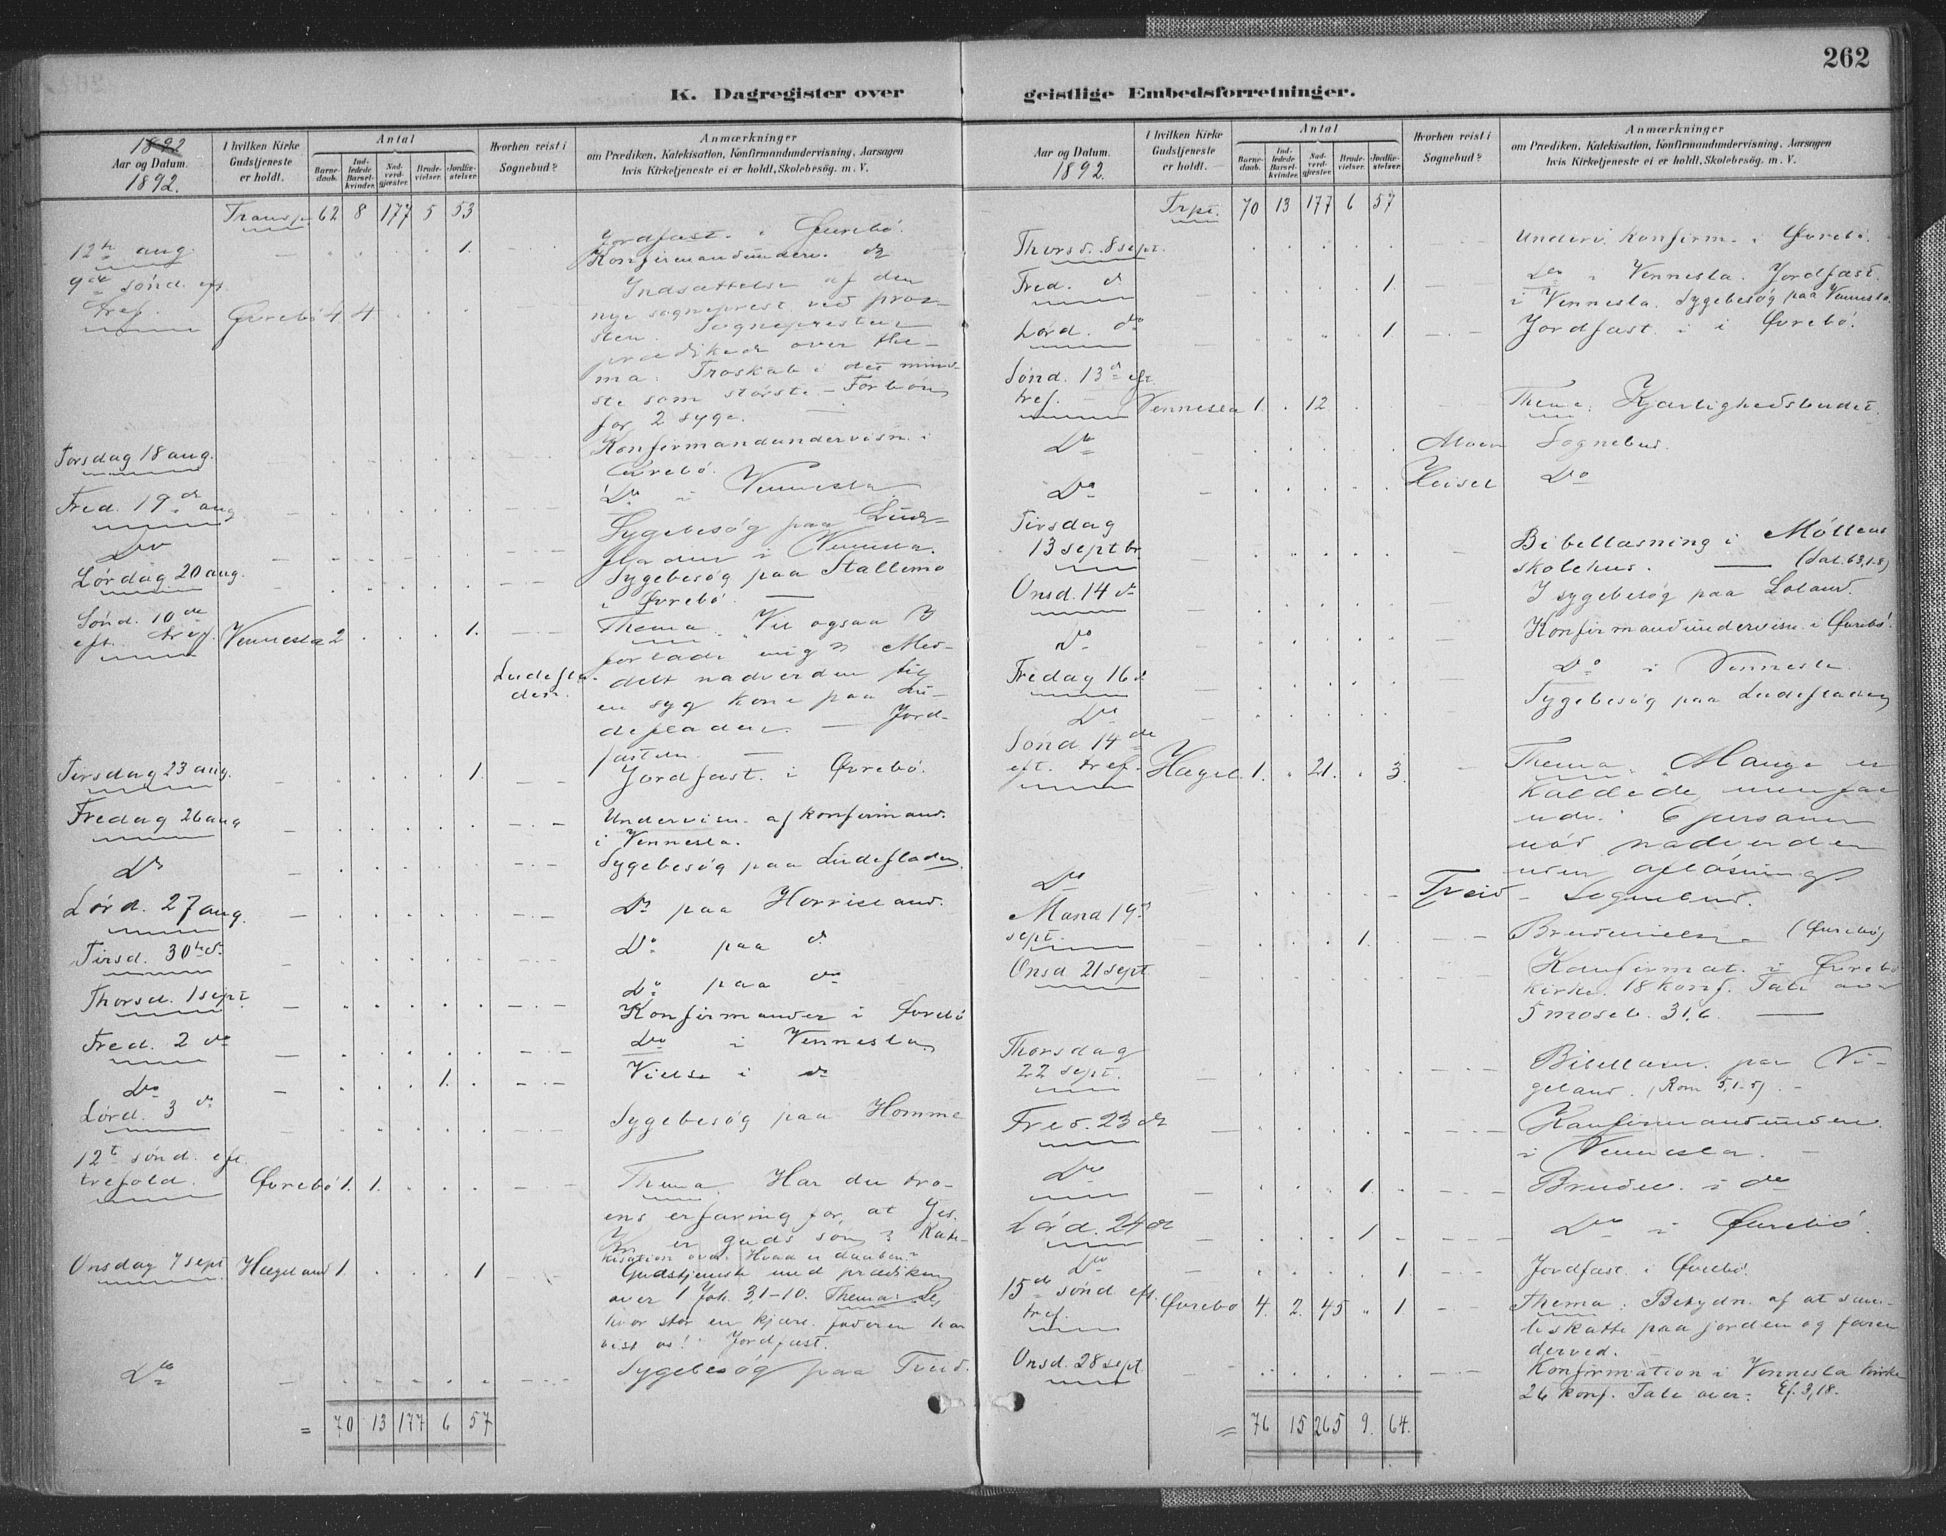 262
K. Dagregister over geistlige Embedsforretninger.
1892
Aar og Datum.
1892.
I hvilken Kirke
Gudstjeneste
er holdt.
Antal
Barne-
daab.
Ind-
ledede
Barsel-
kvinder.
Nad-
verd-
gjester.
Brude-
vielser.
Jordfæ-
stelser.
Hvorhen reist i
Sognebud?
Anmærkninger
om Prædiken, Katekisation, Konfirmandundervisning, Aarsagen
hvis Kirketjeneste ei er holdt, Skolebesøg, m. V.
Transp. 62 8 177 5 53
12te aug. 1. Jordfast. i Øvrebø.
Konfirmandunderv. do
9de sønd. eft.
tref. Øvrebø 4 4 Indsættelse af den
nye sogneprest ved prov-
sten. Sognepresten
prædikede over the-
ma: Troskab i det mind-
ste som største. – Forbøn
for 2 syge.
Torsdag 18 aug. Konfirmandundervisn. i
Øvrebø.
Fred. 19de aug Do i Vennesla
Do Sygebesøg paa Lude-
fladen i Vennesla.
Lørdag 20 aug. Sygebesøg paa Stallemo
i Øvrebø.
Sønd. 10de
eft. tref. Vennesla 2 1. Thema. Vil ogsaa I
forlade mig? Med-
Ludefla-
den. delt nadverden til
en syg kone paa Lu-
defladen. – Jord-
fasteln.
Tirsdag 23 aug. 1. Jordfast. i Øvrebø.
Fredag 26 aug Undervisn. af konfirmand.
i Vennesla.
Do Sygebesøg paa Ludefladen
Lørd. 27 aug. Do paa Horrisland.
Tirsd. 30te do Do paa do
Thorsd. 1 sept. Do paa do
Konfirmander i Øvrebø
Fred. 2 do Do i Vennesla
Do 1. Vielse i do
Lørd. 3 do Sygebesøg paa Homme
12te sønd. eft.
trefold. Øvrebø 1. 1. Thema. Har du tro-
ens erfaring for, at Jes.
er guds søn? Kate-
kisation over Hvad er daaben?
Onsdag 7 sept Hægeland 1. 1 Gudstjeneste med prædiken
over 1 Joh. 3,1-10. Thema: Se,
hvor stor en kjærl. faderen har
vist os! Jordfast.
Do Sygebesøg paa Treid.
= 70 13 177 6 57
Aar og Datum.
1892.
I hvilken Kirke
Gudstjeneste
er holdt.
Antal
Barne-
daab.
Ind-
ledede
Barsel-
kvinder.
Nad-
verd-
gjester.
Brude-
vielser.
Jordfæ-
stelser.
Hvorhen reist i
Sognebud?
Anmærkninger
om Prædiken, Katekisation, Konfirmandundervisning, Aarsagen
hvis Kirketjeneste ei er holdt, Skolebesøg, m. V.
Trpt. 70 13 177 6 57
Thorsd. 8 sept. Underv. konfirm. i Øvrebø.
Fred. do 1 Do i Vennesla. Jordfast.
i Vennesla. Sygebesøg paa Vennesla.
Lørd. do 1 Jordfast. i Øvrebø.
Sønd. 13de eft.
tref. Vennesla 1. 12 Thema: Kjærlighedsbudet.
Do Moen Sognebud.
Do Heisel Do
Tirsdag
13 septbr. Bibellæsning i Møllens
skolehus. (Sal. 63,1-8)
Onsd. 14 do I sygebesøg paa Loland.
Do Konfirmandundervisn. i Øvrebø.
Fredag 16 do Do i Vennesla.
Do Sygebesøg paa Ludefladen
Sønd 14de
eft. tref. Hægel. 1. 21. 3. Thema. Mange er
kaldede, men faa
udv. 6 personer
nød nadverden
uden afløsning
Do Treid Sognebud.
Mand 19de
sept. 1. Brudevielse (Øvrebø)
Onsd 21 sept. Konfirmat. i Øvrebø
kirke. 18 konf. Tale over
5 moseb. 31,6
Thorsdag
22 sept. Bibellæsn. paa Vi-
geland. (Rom 5,1-5).
Fred. 23 do Konfirmandunderv.
i Vennesla.
Do 1. Brudev. i do
Lørd. 24 do 1 Do i Øvrebø.
Do 1. Jordfast. i Øvrebø.
15de sønd. eft.
tref. Øvrebø 4. 2. 45 1. Thema: Betydn. af at sam-
le skatte paa jorden og faren
derved.
Onsd. 28 sept. Konfirmation i Vennesla kirke
26 konf. Tale over: Ef. 3,18.
= 76 15 265 9. 64.